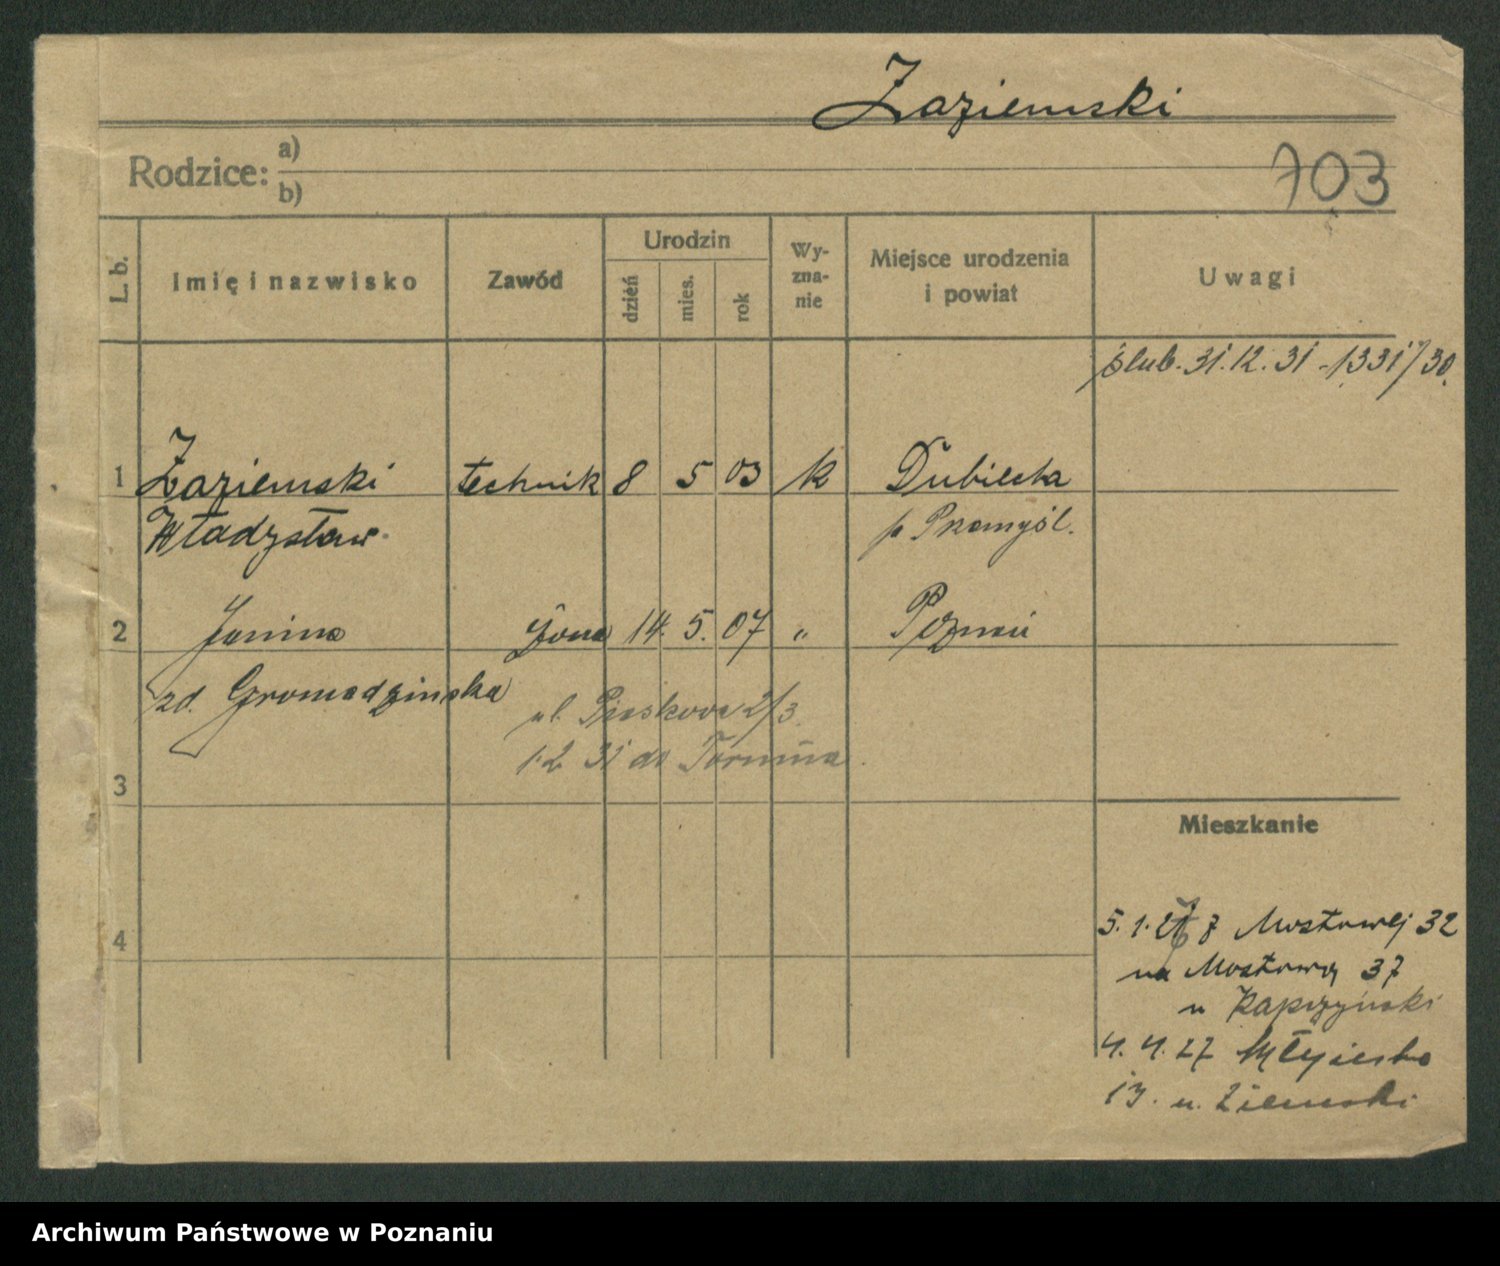 Zaziemski
Rodzice: a)
b)
703
L. b.
Imię i nazwisko
Zawód
Urodzin
dzień
mies.
rok
Wy-
zna-
nie
Miejsce urodzenia
i powiat
Uwagi
ślub. 31.12.31 - 1331/30.
1 Zaziemski technik 8 5 03 k Dubiecka
Władysław p Przemyśl.
2 Janina żona 14. 5. 07 " Poznań
zd. Gromadzińska
ul. Piaskowa 2/3.
1.2 31 do Torunia.
3
Mieszkanie
4
5. 1. 27 z Mostowej 32
na Mostową 37
u Kapczyński
4. 4. 27
13. u. Ziemski
Archiwum Państwowe w Poznaniu